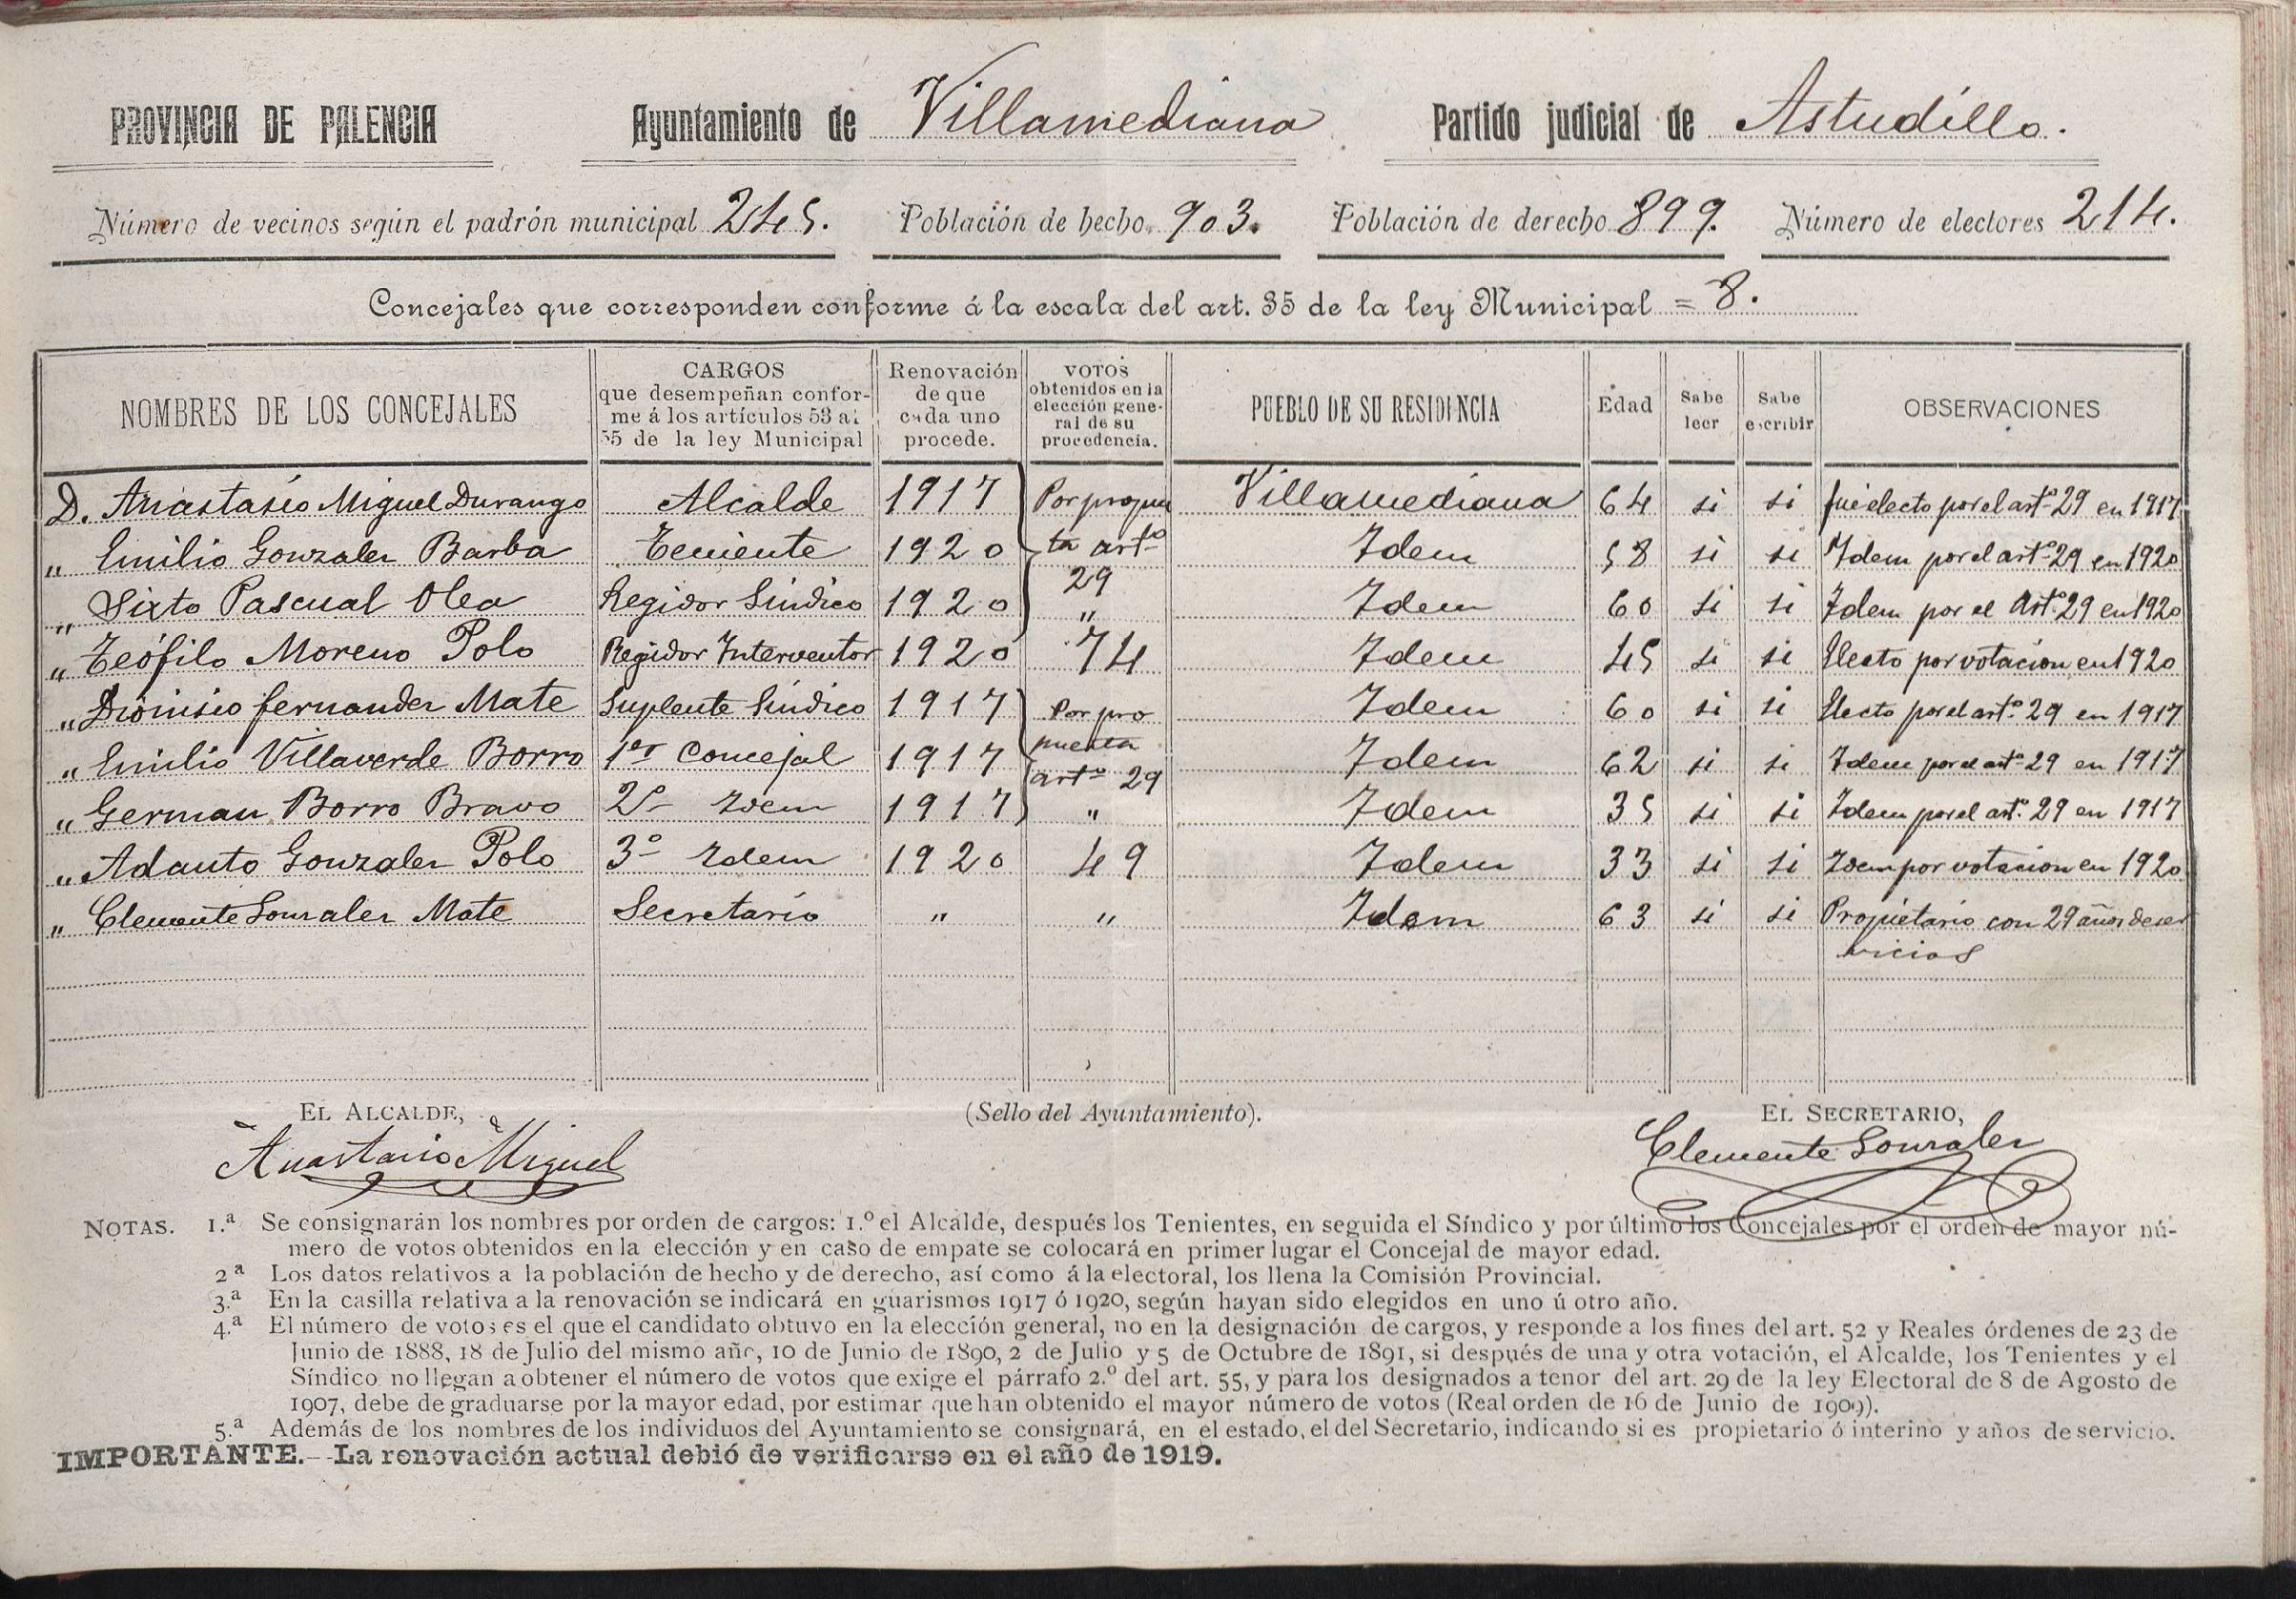 PROVINCIA DE PALENCIA Ayuntamiento de Villamediana Partido judicial de Astudillo.
Número de vecinos según el padrón municipal 245. Población de hecho 903. Población de derecho 899. Número de electores 214.
Concejales que corresponden conforme á la escala del art. 35 de la ley Municipal = 8.
NOMBRES DE LOS CONCEJALES
CARGOS
que desempeñan confor-
me á los artículos 53 al
55 de la ley Municipal
Renovación
de que
cada uno
procede.
VOTOS
obtenidos en la
elección gene-
ral de su
procedencia.
PUEBLO DE SU RESIDENCIA
Edad
Sabe
leer
Sabe
escribir
OBSERVACIONES
D. Anastasio Miguel Durango Alcalde 1917 Por propues Villamediana 64 si si fué electo por el artº 29 en 1917
„ Emilio Gonzalez Barba Teniente 1920 ta artº Idem 58 si si Idem por el artº 29 en 1920
29
„ Sixto Pascual Olea Regidor Síndico 1920 „ Idem 60 si si Idem por el Artº 29 en 1920
„ Teófilo Moreno Polo Regidor Interventor 1920 74 Idem 45 si si Electo por votacion en 1920
„ Dionisio fernandez Mate Suplente Síndico 1917 Por pro Idem 60 si si Electo por el artº 29 en 1917
puesta
„ Emilio Villaverde Borro 1er Concejal 1917 artº 29 Idem 62 si si Idem por el artº 29 en 1917
„ German Borro Bravo 2º Idem 1917 „ Idem 35 si si Idem por el artº 29 en 1917
„ Adauto Gonzalez Polo 3º Idem 1920 49 Idem 33 si si Idem por votacion en 1920
„ Clemente Gonzalez Mate Secretario „ „ Idem 63 si si Propietario con 29 años de ser
vicios
EL ALCALDE, (Sello del Ayuntamiento). EL SECRETARIO,
Anastasio Miguel Clemente Gonzalez
NOTAS. 1.ª Se consignarán los nombres por orden de cargos: 1.º el Alcalde, después los Tenientes, en seguida el Síndico y por último los Concejales por el orden de mayor nú-
mero de votos obtenidos en la elección y en caso de empate se colocará en primer lugar el Concejal de mayor edad.
2ª Los datos relativos a la población de hecho y de derecho, así como á la electoral, los llena la Comisión Provincial.
3.ª En la casilla relativa a la renovación se indicará en guarismos 1917 ó 1920, según hayan sido elegidos en uno ú otro año.
4.ª El número de votos es el que el candidato obtuvo en la elección general, no en la designación de cargos, y responde a los fines del art. 52 y Reales órdenes de 23 de
Junio de 1888, 18 de Julio del mismo año, 10 de Junio de 1890, 2 de Julio y 5 de Octubre de 1891, si después de una y otra votación, el Alcalde, los Tenientes y el
Síndico no llegan a obtener el número de votos que exige el párrafo 2.º del art. 55, y para los designados a tenor del art. 29 de la ley Electoral de 8 de Agosto de
1907, debe de graduarse por la mayor edad, por estimar que han obtenido el mayor número de votos (Real orden de 16 de Junio de 1909).
5.ª Además de los nombres de los individuos del Ayuntamiento se consignará, en el estado, el del Secretario, indicando si es propietario ó interino y años de servicio.
IMPORTANTE.--La renovación actual debió de verificarse en el año de 1919.